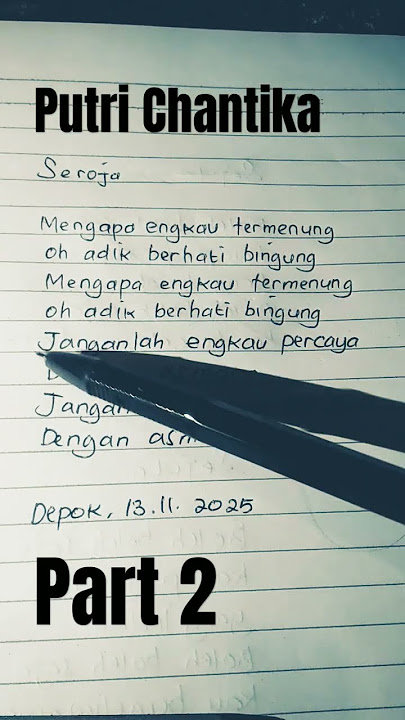 Putri Chantika
Seroja
Mengapa engkau termenung
oh adik berhati bingung
Mengapa engkau termenung
oh adik berhati bingung
Janganlah engkau percaya
Dengan
Depok, 13.11.2025
Part 2